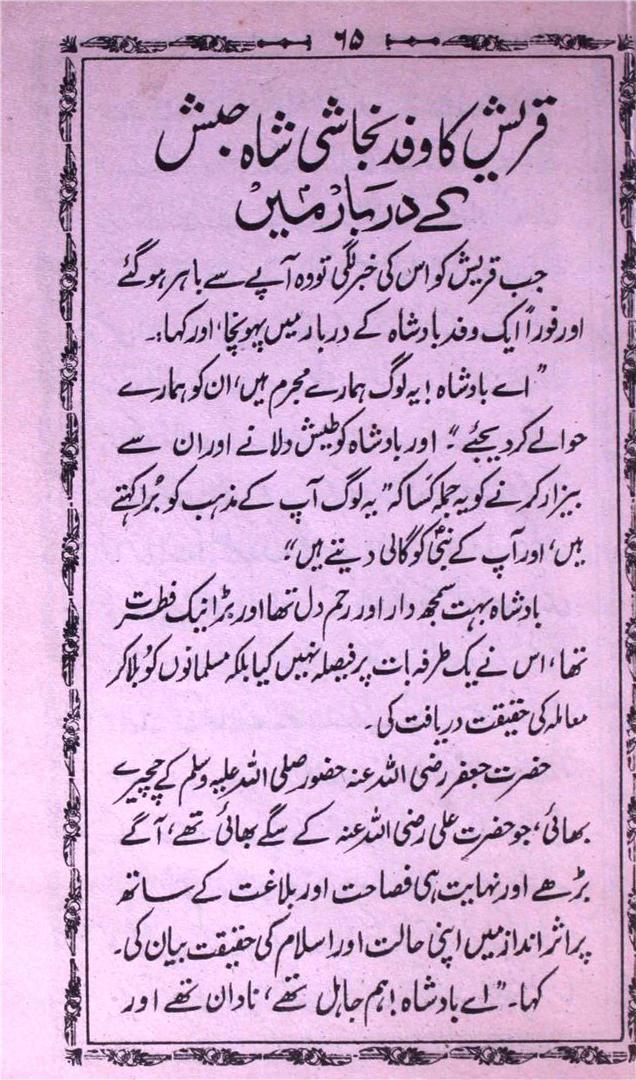 ۶۵
قریش کا وفد نجاشی شاہ حبش
کے دربار میں
جب قریش کو اس کی خبر لگی تو وہ آپے سے باہر ہو گئے
اور فوراً ایک وفد بادشاہ کے دربار میں پہونچا، اور کہا:۔
”اے بادشاہ! یہ لوگ ہمارے مجرم ہیں، ان کو ہمارے
حوالے کر دیجئے“۔ اور بادشاہ کو طیش دلانے اور ان سے
بیزار کرنے کو یہ جملہ کسا کہ ”یہ لوگ آپ کے مذہب کو بُرا کہتے
ہیں، اور آپ کے نبیؑ کو گالی دیتے ہیں“
بادشاہ بہت سمجھ دار اور رحم دل تھا اور بڑا نیک فطرت
تھا، اس نے یک طرفہ بات پر فیصلہ نہیں کیا بلکہ مسلمانوں کو بُلا کر
معاملہ کی حقیقت دریافت کی۔
حضرت جعفر رضی اللہ عنہ حضور صلی اللہ علیہ وسلم کے چچیرے
بھائی، جو حضرت علی رضی اللہ عنہ کے سگے بھائی تھے، آگے
بڑھے اور نہایت ہی فصاحت اور بلاغت کے ساتھ
پر اثر انداز میں اپنی حالت اور اسلام کی حقیقت بیان کی۔
کہا۔ ”اے بادشاہ! ہم جاہل تھے، نادان تھے اور